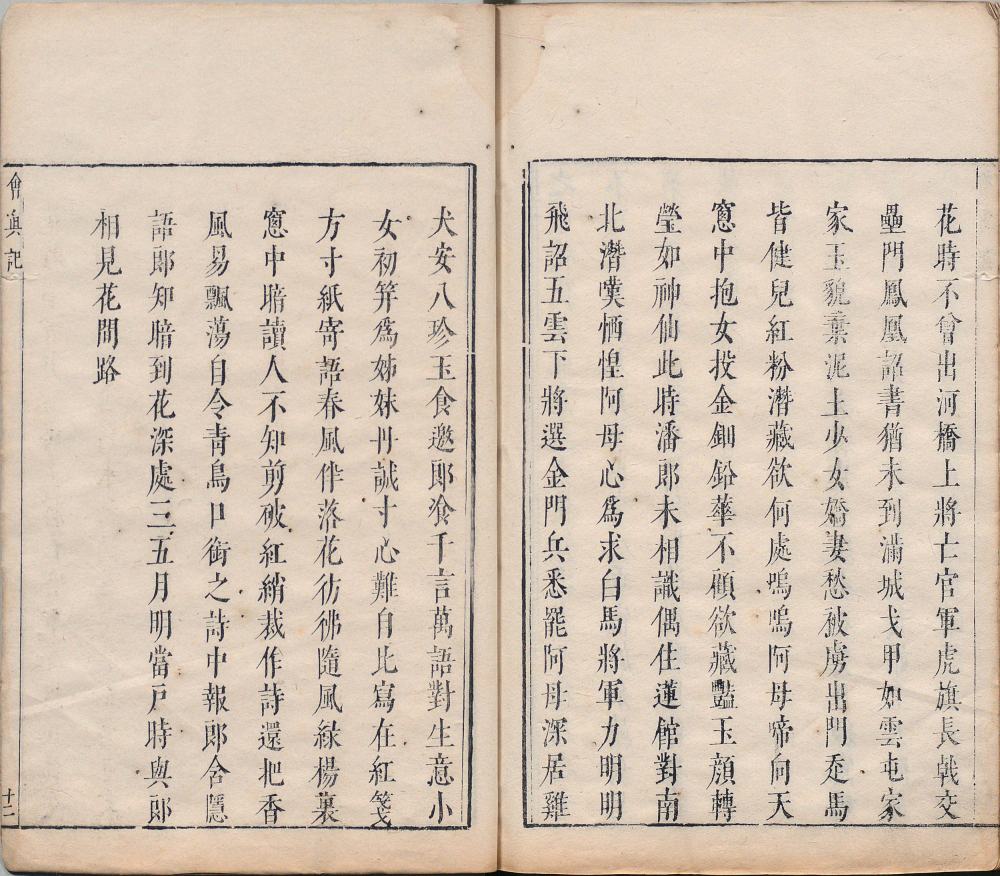 花時不曾出河橋上將亡官軍虎旗長戟交
壘門鳳凰詔書猶未到滿城戈甲如雲屯家
家玉貌棄泥土少女嬌妻愁被虜出門走馬
皆健兒紅粉潛藏欲何處嗚嗚阿母啼向天
窻中抱女投金鈿鉛華不顧欲藏豔玉顏轉
瑩如神仙此時潘郎未相識偶住蓮館對南
北潛嘆恓惶阿母心爲求白馬將軍力明明
飛詔五雲下將選金門兵悉罷阿母深居雞
犬安八珍玉食邀郎湌千言萬語對生意小
女初笄爲姊妹丹誠寸心難自比寫在紅箋
方寸紙寄語春風伴落花彷彿隨風綠楊裏
窻中暗讀人不知剪破紅綃裁作詩還把香
風易飄蕩自令青鳥口銜之詩中報郎含隱
語郎知暗到花深處三五月明當戶時與郎
相見花間路
會眞記
十二